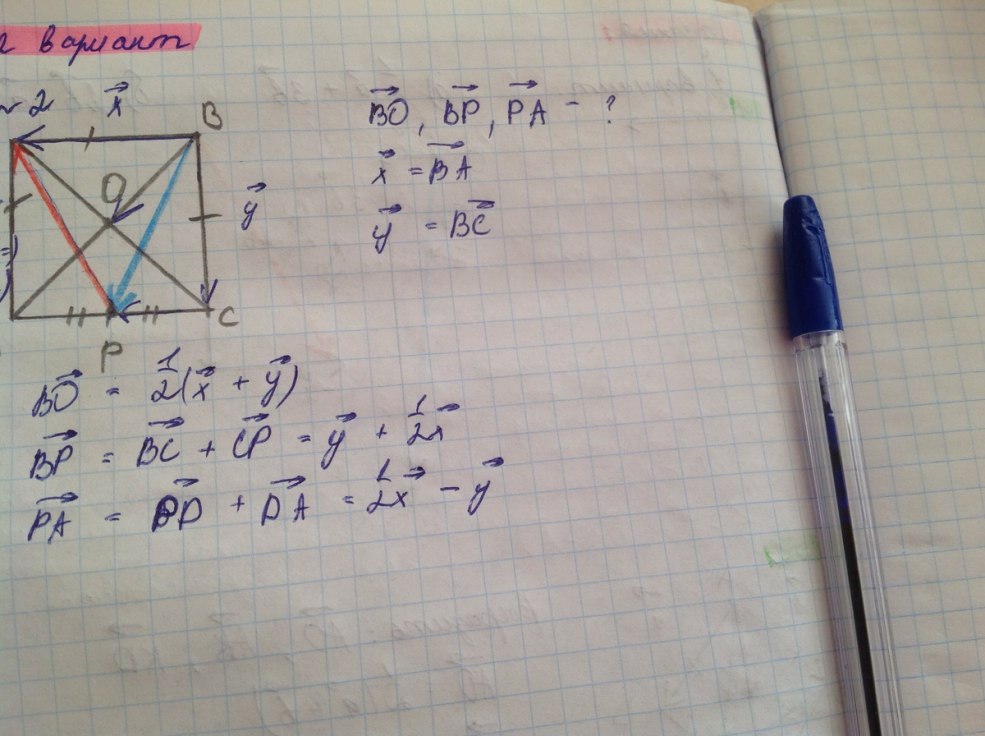 2 вариант
№ 2 x⃗ B
BO⃗, BP⃗, PA⃗ - ?
x⃗ = BA⃗
O y⃗
y⃗ = BC⃗
C
P
BO⃗ = 1/2(x⃗ + y⃗)
BP⃗ = BC⃗ + CP⃗ = y⃗ + 1/2x⃗
PA⃗ = PD⃗ + DA⃗ = 1/2x⃗ - y⃗